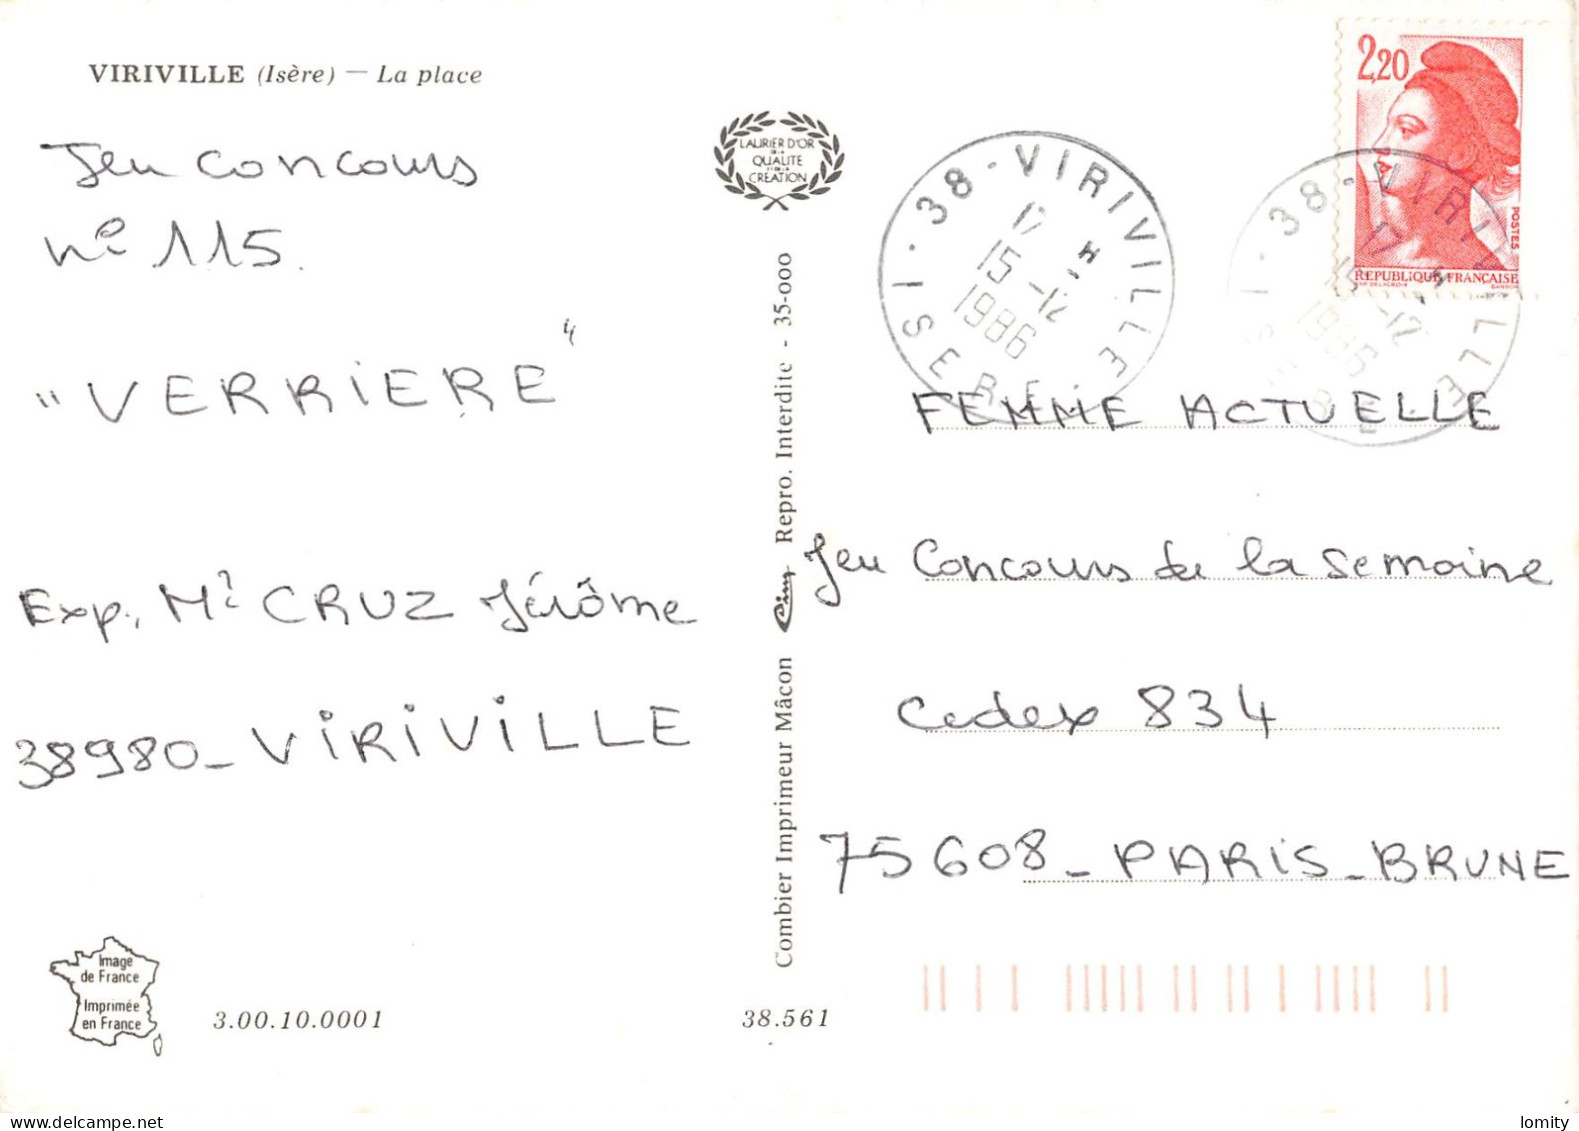 VIRIVILLE (Isère) — La place
Jeu concours
n° 115.
"VERRIERE"
Exp. Mr CRUZ Jérôme
38980_ VIRIVILLE
Image
de France
Imprimée
en France
3.00.10.0001
38.561
LAURIER D'OR
DE LA
QUALITE
ET DE LA
CREATION
Combier Imprimeur Mâcon Cim Repro. Interdite - 35-000
38 - VIRIVILLE
17 H
15 -12
1986
ISERE
38 - VIRIVILLE
17 H
15 -12
1986
ISERE
2,20
POSTES
REPUBLIQUE FRANÇAISE
GANDON
FEMME ACTUELLE
Jeu Concours de la semaine
Cedex 834
75608_ PARIS_BRUNE
lomity